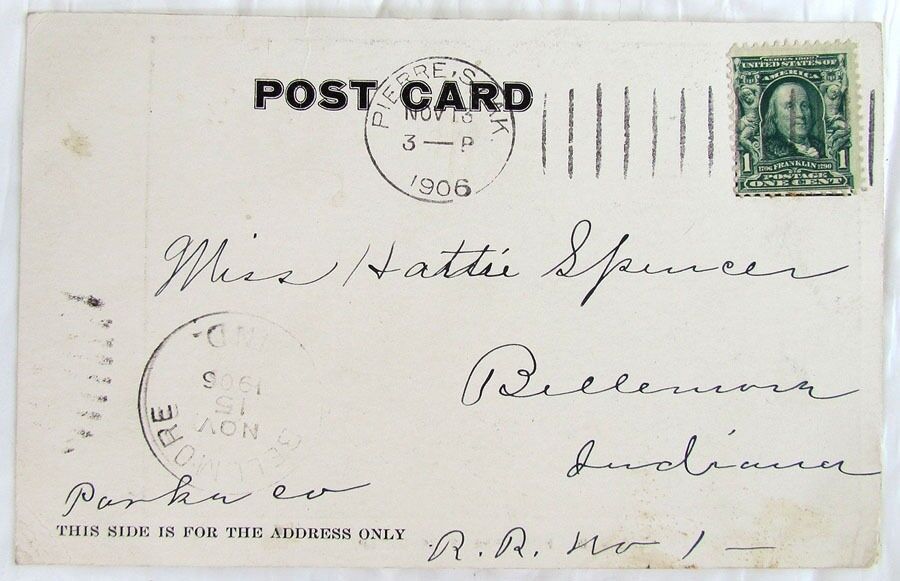 POST CARD
PIERRE, S. DAK
NOV 13
3 — P
1906
SERIES 1902
UNITED STATES OF
AMERICA
1 1706 FRANKLIN 1790 1
POSTAGE
ONE CENT
Miss Hattie Spencer
Bellemore
Indiana
BELLMORE
NOV
15
1906
IND.
Parke co
THIS SIDE IS FOR THE ADDRESS ONLY
R. R. No 1 —